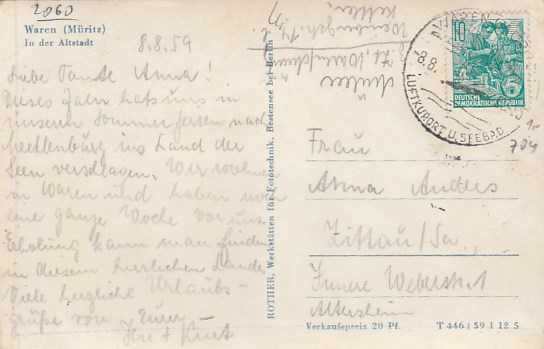 2060
Waren (Müritz)
In der Altstadt
8.8.59
Liebe Tante Anna!
Dieses Jahr hats uns in
unseren Sommerferien nach
Mecklenburg ins Land der
Seen verschlagen. Wir wohnen
in Waren und haben noch
eine ganze Woche vor uns.
Erholung kann man finden
in diesem herrlichen Lande.
Viele herzliche Urlaubs-
grüße von Eurer
Kurt
ROTHER, Werkstätten für Fototechnik, Bestensee bei Berlin
10
DEUTSCHE
DEMOKRATISCHE REPUBLIK
-8.8
LUFTKURORT U. SEEBAD
Frau
Anna Anders
Zittau/Sa.
Innere Weberstr. 1
Altersheim
Verkaufspreis 20 Pf.
T 446 | 59 1 12 5